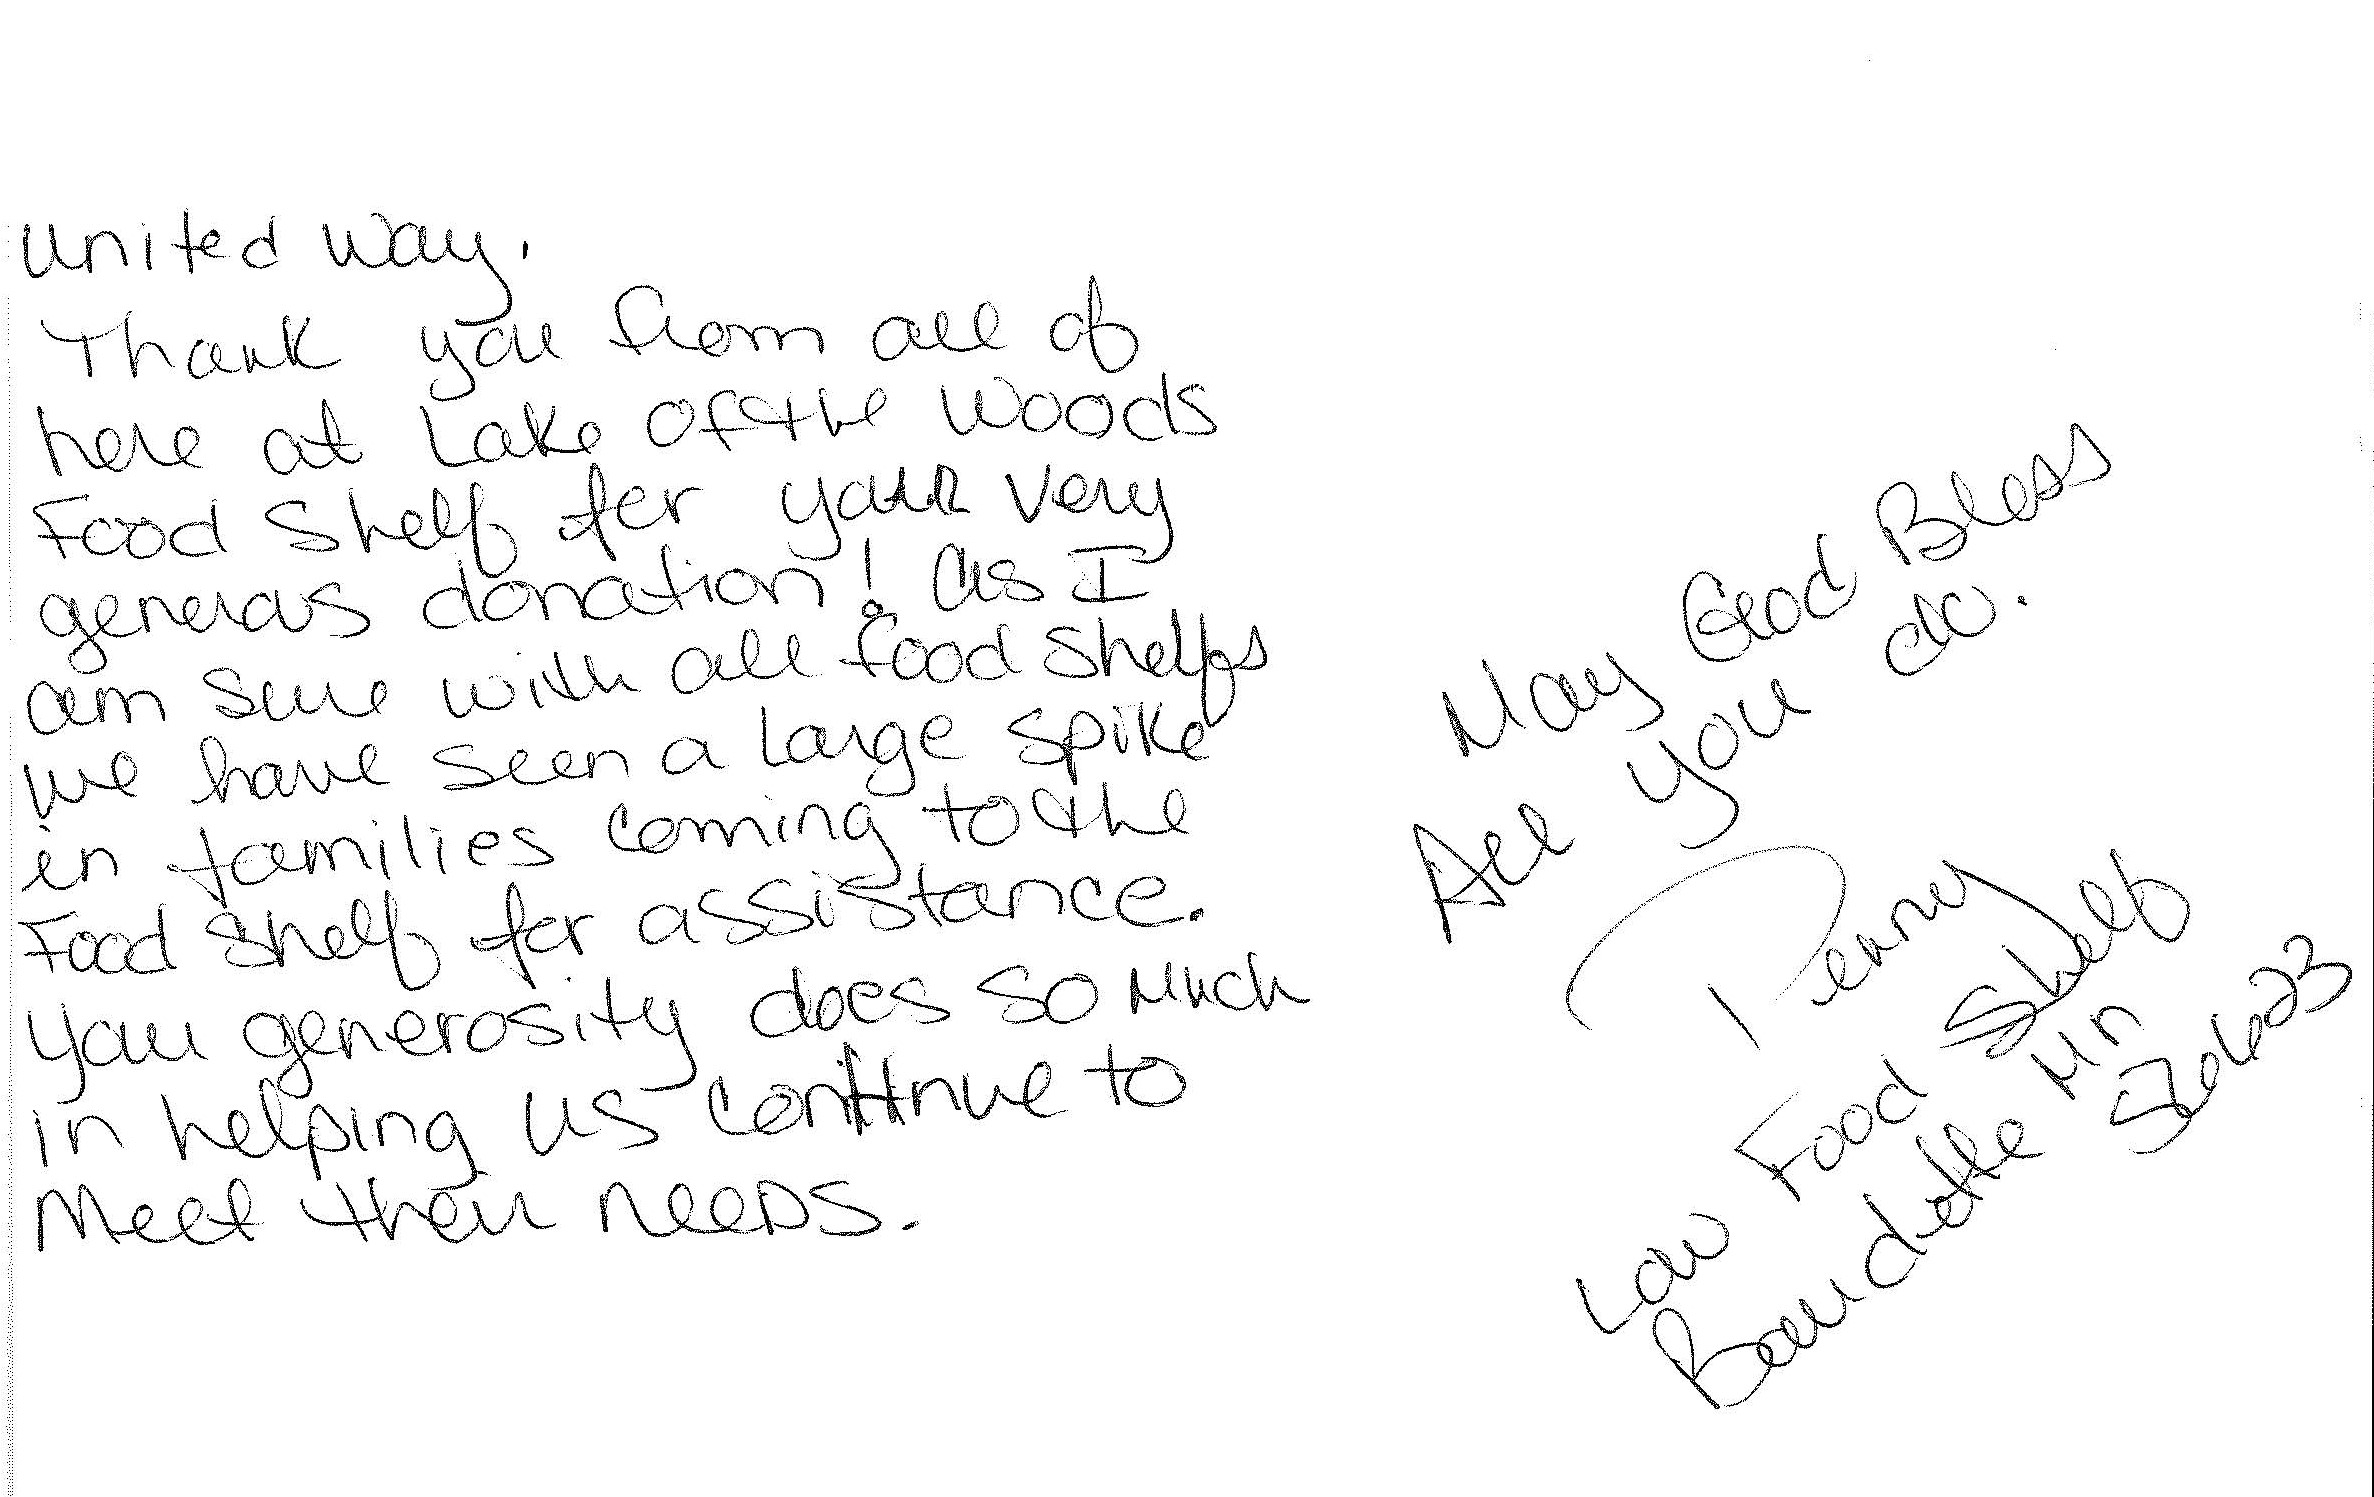 United Way,
Thank you from all of
here at Lake of the Woods
Food Shelf for your very
generous donation! As I
am sure with all food shelfs
we have seen a large spike
in families coming to the
Food Shelf for assistance.
You generosity does so much
in helping us continue to
Meet their needs.
May God Bless
All you do.
Penny
Low Food Shelf
Baudette Mn
56623